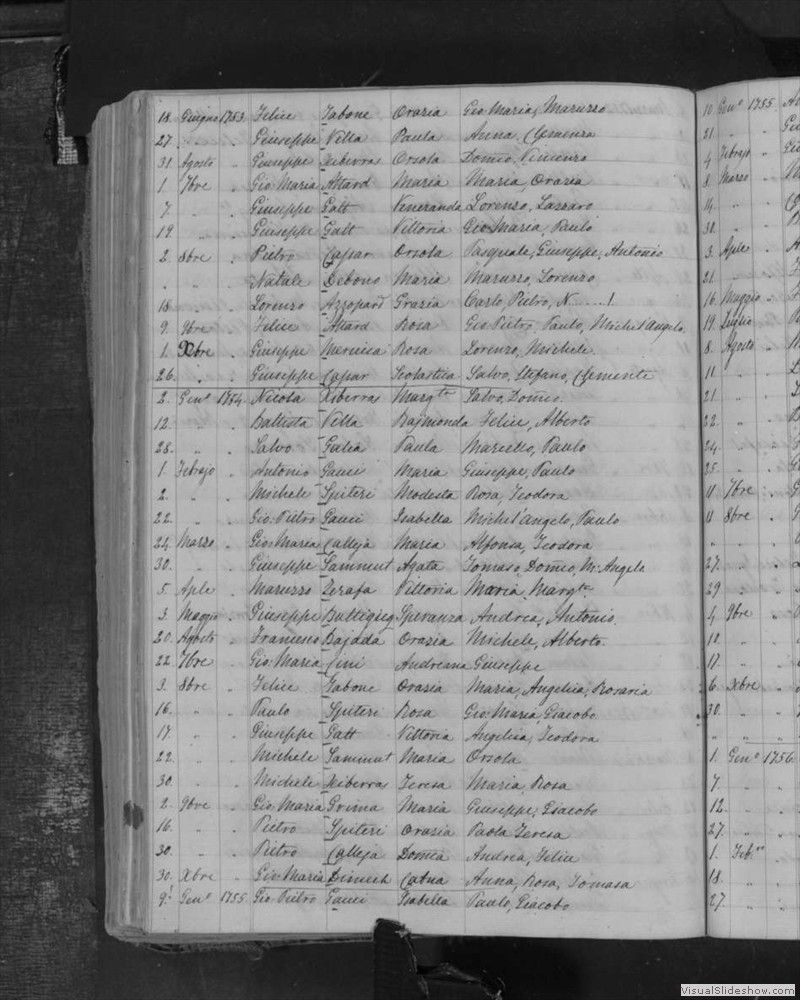 18. Giugno 1753. Felice Tabone Orazia Gio Maria, Maruzzo
27. " " Giuseppe Villa Paula Anna, Clemenza
31. Agosto " Giuseppe Xiberras Orsola Domco, Vincenzo
1. 7bre " Gio Maria Attard Maria Maria, Orazia
7. " " Giuseppe Gatt Veneranda Lorenzo, Lazzaro
19. " " Giuseppe Gatt Vittoria Gio Maria, Paulo
2. 8bre " Pietro Caspar Orsola Pasquale, Giuseppe, Antonio
" " " Natale Debono Maria Maruzzo, Lorenzo
18. " " Lorenzo Azzopard Grazia Carlo, Pietro, N.....!
9. 9bre " Felice Attard Rosa Gio Pietro, Paulo, Michel'Angelo.
1. Xbre " Giuseppe Rosa Lorenzo, Michele.
26. " " Giuseppe Caspar Scolastica Salvo, Stefano, Clemente
2. Geno 1754. Nicola Xiberras Margta Salvo, Domco.
12. " Battista Villa Rajmonda Felice, Alberto
28. " " Salvo Galea Paula Marcello, Paulo
1. Febrajo " Antonio Gauci Maria Giuseppe, Paulo
2. " " Michele Spiteri Modesta Rosa, Teodora
22. " " Gio Pietro Gauci Isabella Michel'Angelo, Paulo
24. Marzo " Gio Maria Calleja Maria Alfonsa, Teodora
30. " " Giuseppe Sammut Agata Tomaso, Domco, Mc. Angelo
5. Aple " Maruzzo Zerafa Vittoria Maria, Margta.
3. Maggio " Giuseppe Buttigieg Speranza Andrea, Antonio.
20. Agosto " Francesco Bajada Orazia Michele, Alberto.
22. 7bre " Gio Maria Cini Andreana Giuseppe
3. 8bre " Felice Tabone Orazia Maria, Angelica, Rosaria
16. " " Paulo Spiteri Rosa Gio Maria, Giacobo
17. " " Giuseppe Gatt Vittoria Angelica, Teodora
22. " " Michele Sammut Maria Orsola
30. " " Michele Xiberras Teresa Maria, Rosa
2. 9bre " Gio Maria Grima Maria Giuseppe, Giacobo
16. " " Pietro Spiteri Orazia Paola Teresa
30. " " Pietro Calleja Domca Andrea, Felice
30. Xbre " Gio Maria Dimech Catna Anna, Rosa, Tomasa
9. Geno 1755. Gio Pietro Gauci Isabella Paulo, Giacobo
10 Geno 1755.
21 " "
4 Febrajo "
8 Marzo "
14 " "
30. " "
3. Aple "
21. " "
16. Maggio "
19. Luglio "
8. Agosto "
11. " "
21. " "
22. " "
24. " "
25. " "
11. 7bre "
11 8bre "
" " "
27. " "
29 " "
4 9bre "
10. " "
17. " "
6. Xbre "
30. " "
" " "
1. Geno 1756.
7. " "
12. " "
27. " "
1. Febo "
18. " "
27. " "
VisualSlideshow.com